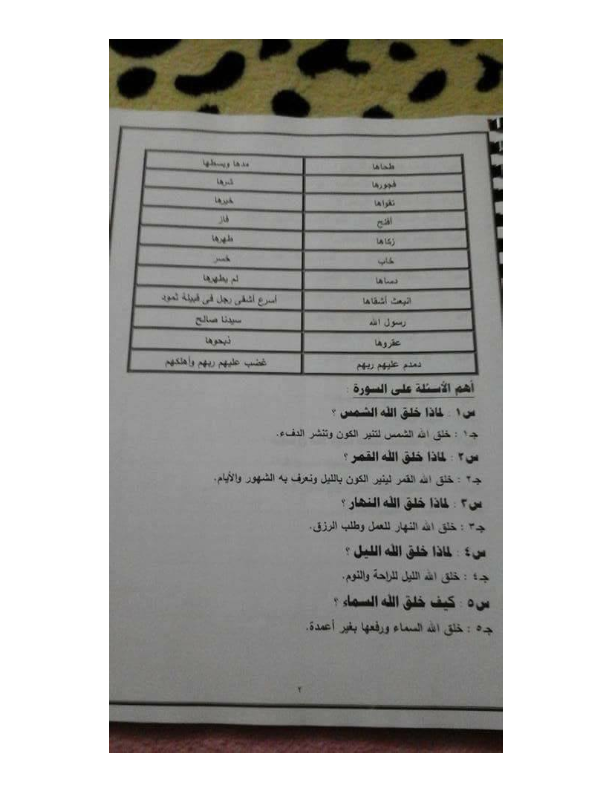 طحاها مدها وبسطها
فجورها شرها
تقواها خيرها
أفلح فاز
زكاها طهرها
خاب خسر
دساها لم يطهرها
انبعث أشقاها أسرع أشقى رجل فى قبيلة ثمود
رسول الله سيدنا صالح
عقروها ذبحوها
دمدم عليهم ربهم غضب عليهم ربهم وأهلكهم
أهم الأسئلة على السورة :
س١ : لماذا خلق الله الشمس ؟
جـ١ : خلق الله الشمس لتنير الكون وتنشر الدفء.
س٢ : لماذا خلق الله القمر ؟
جـ٢ : خلق الله القمر لينير الكون بالليل ونعرف به الشهور والأيام.
س٣ : لماذا خلق الله النهار ؟
جـ٣ : خلق الله النهار للعمل وطلب الرزق.
س٤ : لماذا خلق الله الليل ؟
جـ٤ : خلق الله الليل للراحة والنوم.
س٥ : كيف خلق الله السماء ؟
جـ٥ : خلق الله السماء ورفعها بغير أعمدة.
٢